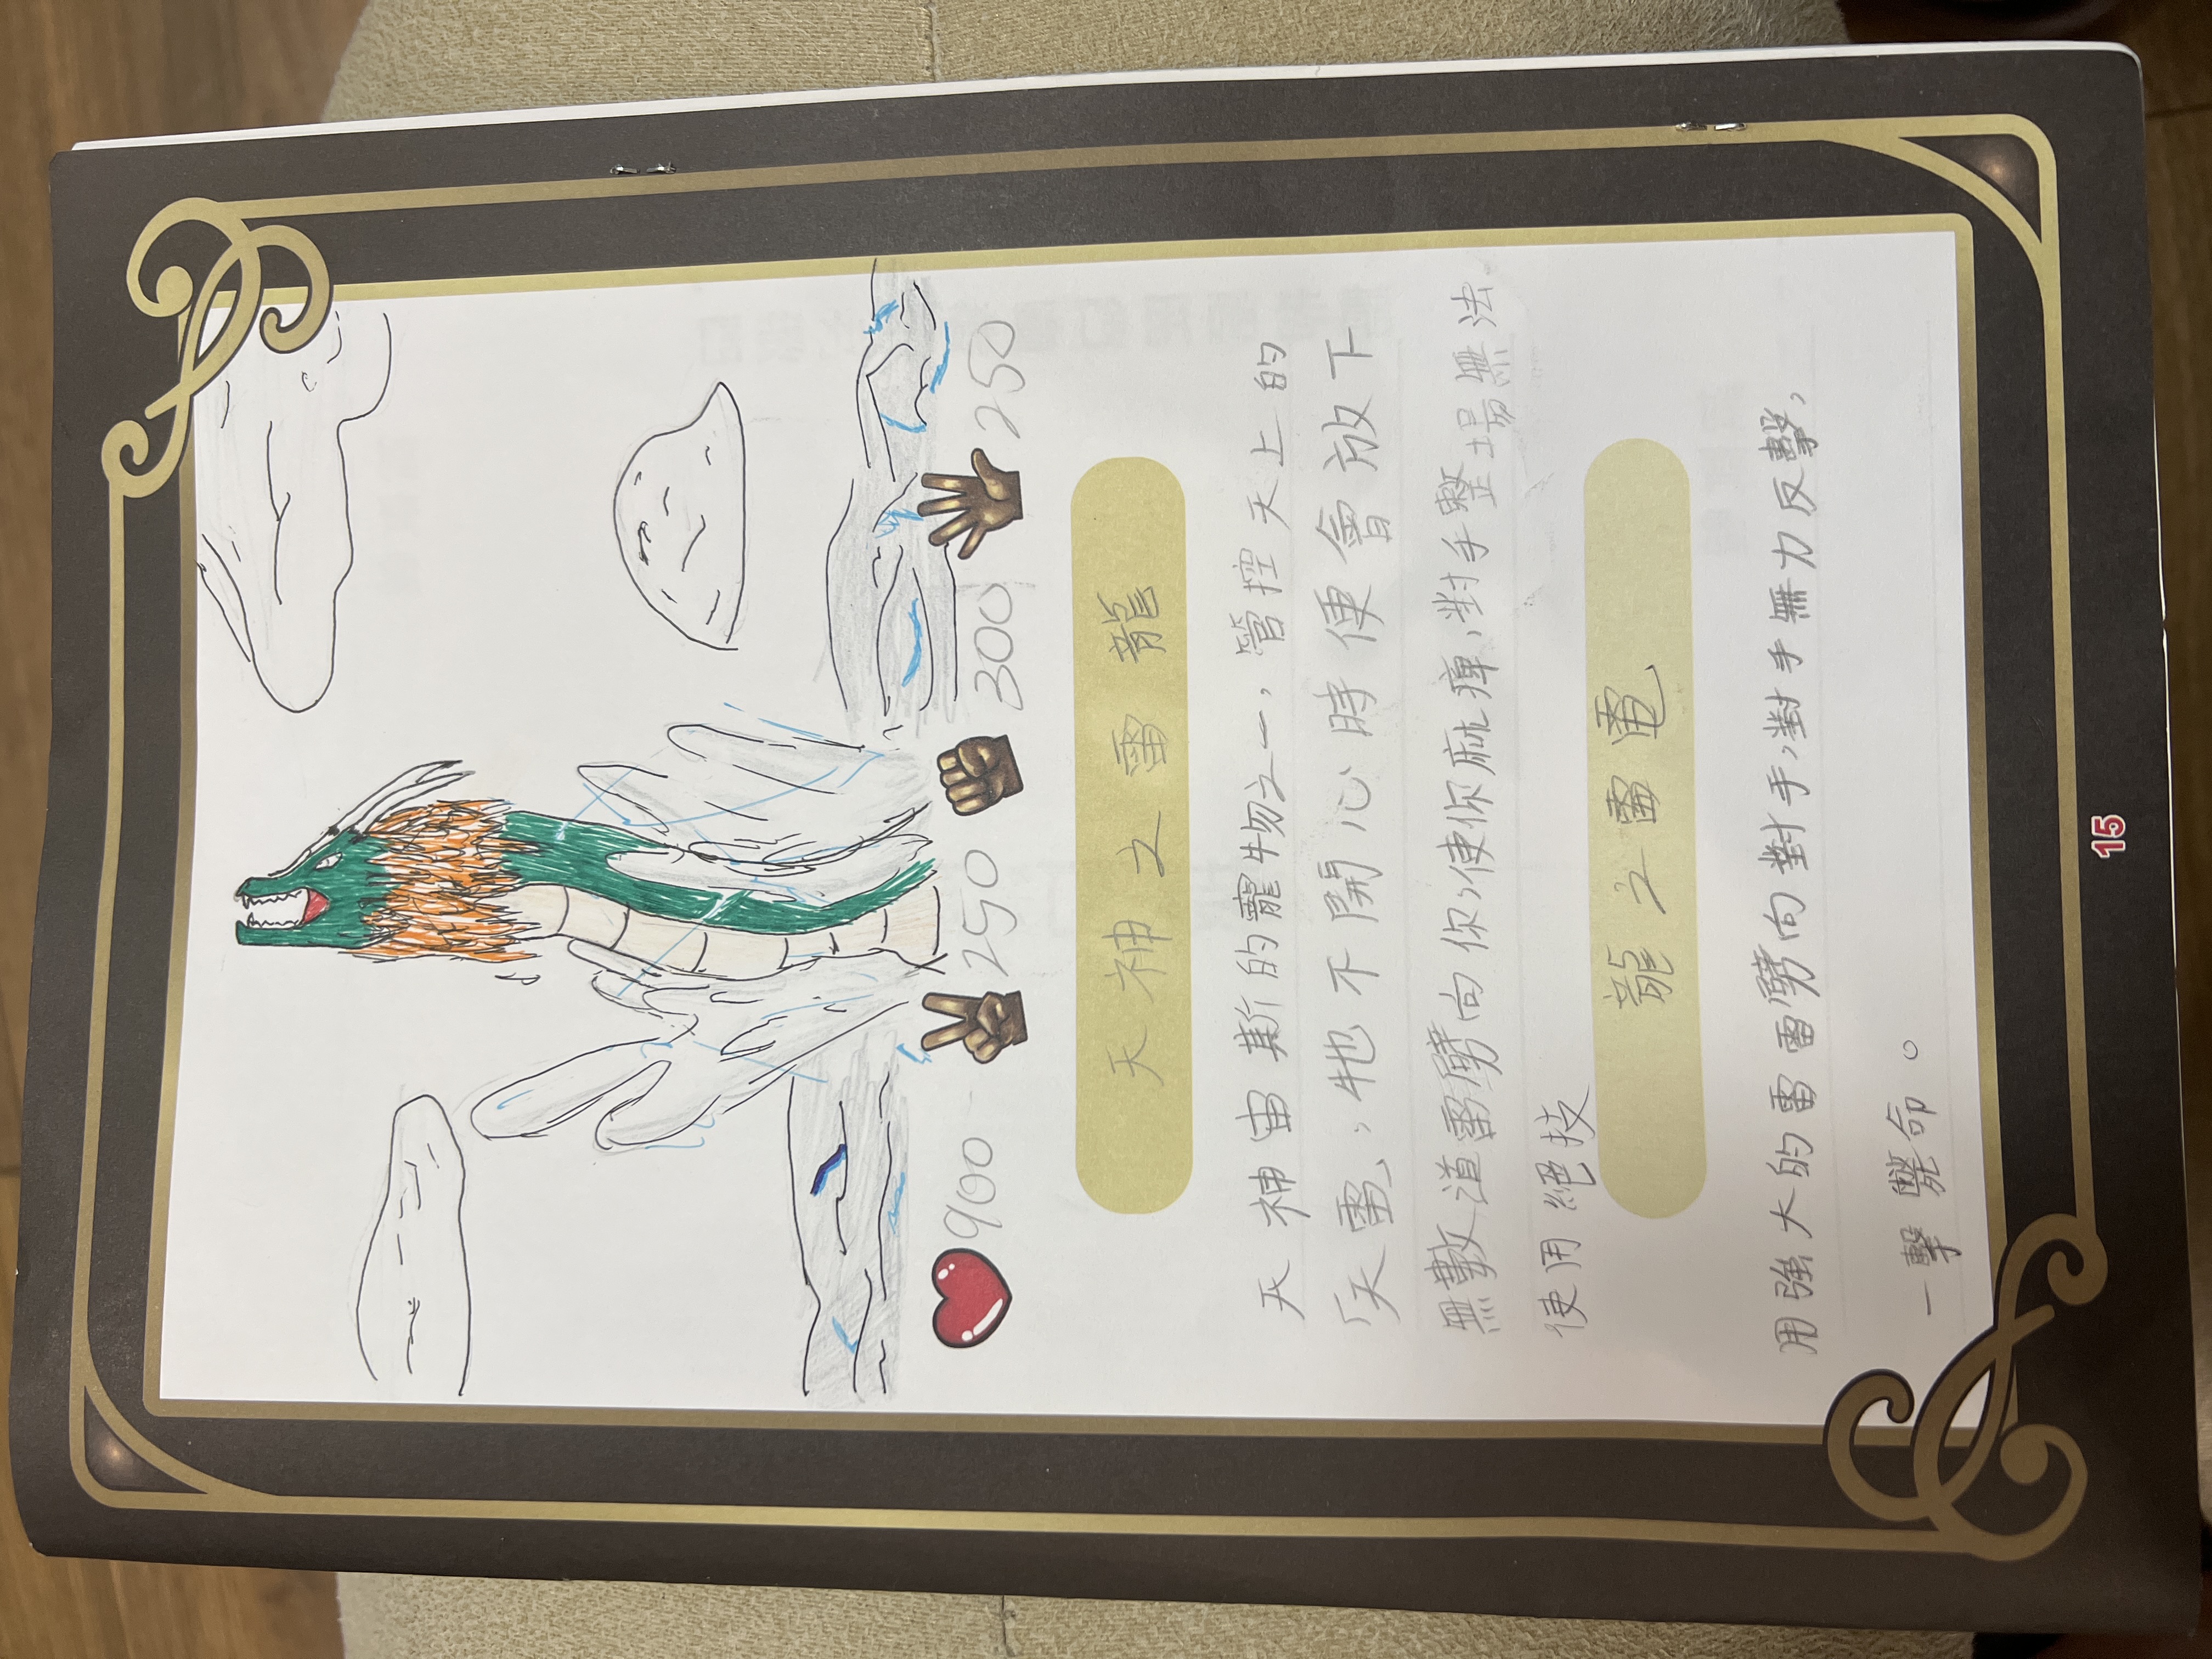 900 250 300 250
天神之雷龍
天神宙斯的寵物之一，管控天上的
「天雷」，牠不開心時便會放下
無數道雷劈向你，使你麻痺，對手整場無法
使用絕技
龍之雷電
用強大的雷雷劈向對手，對手無力反擊，
一擊斃命。
15